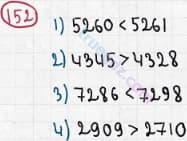 152
1) 5260 < 5261
2) 4345 > 4328
3) 7286 < 7298
4) 2909 > 2710